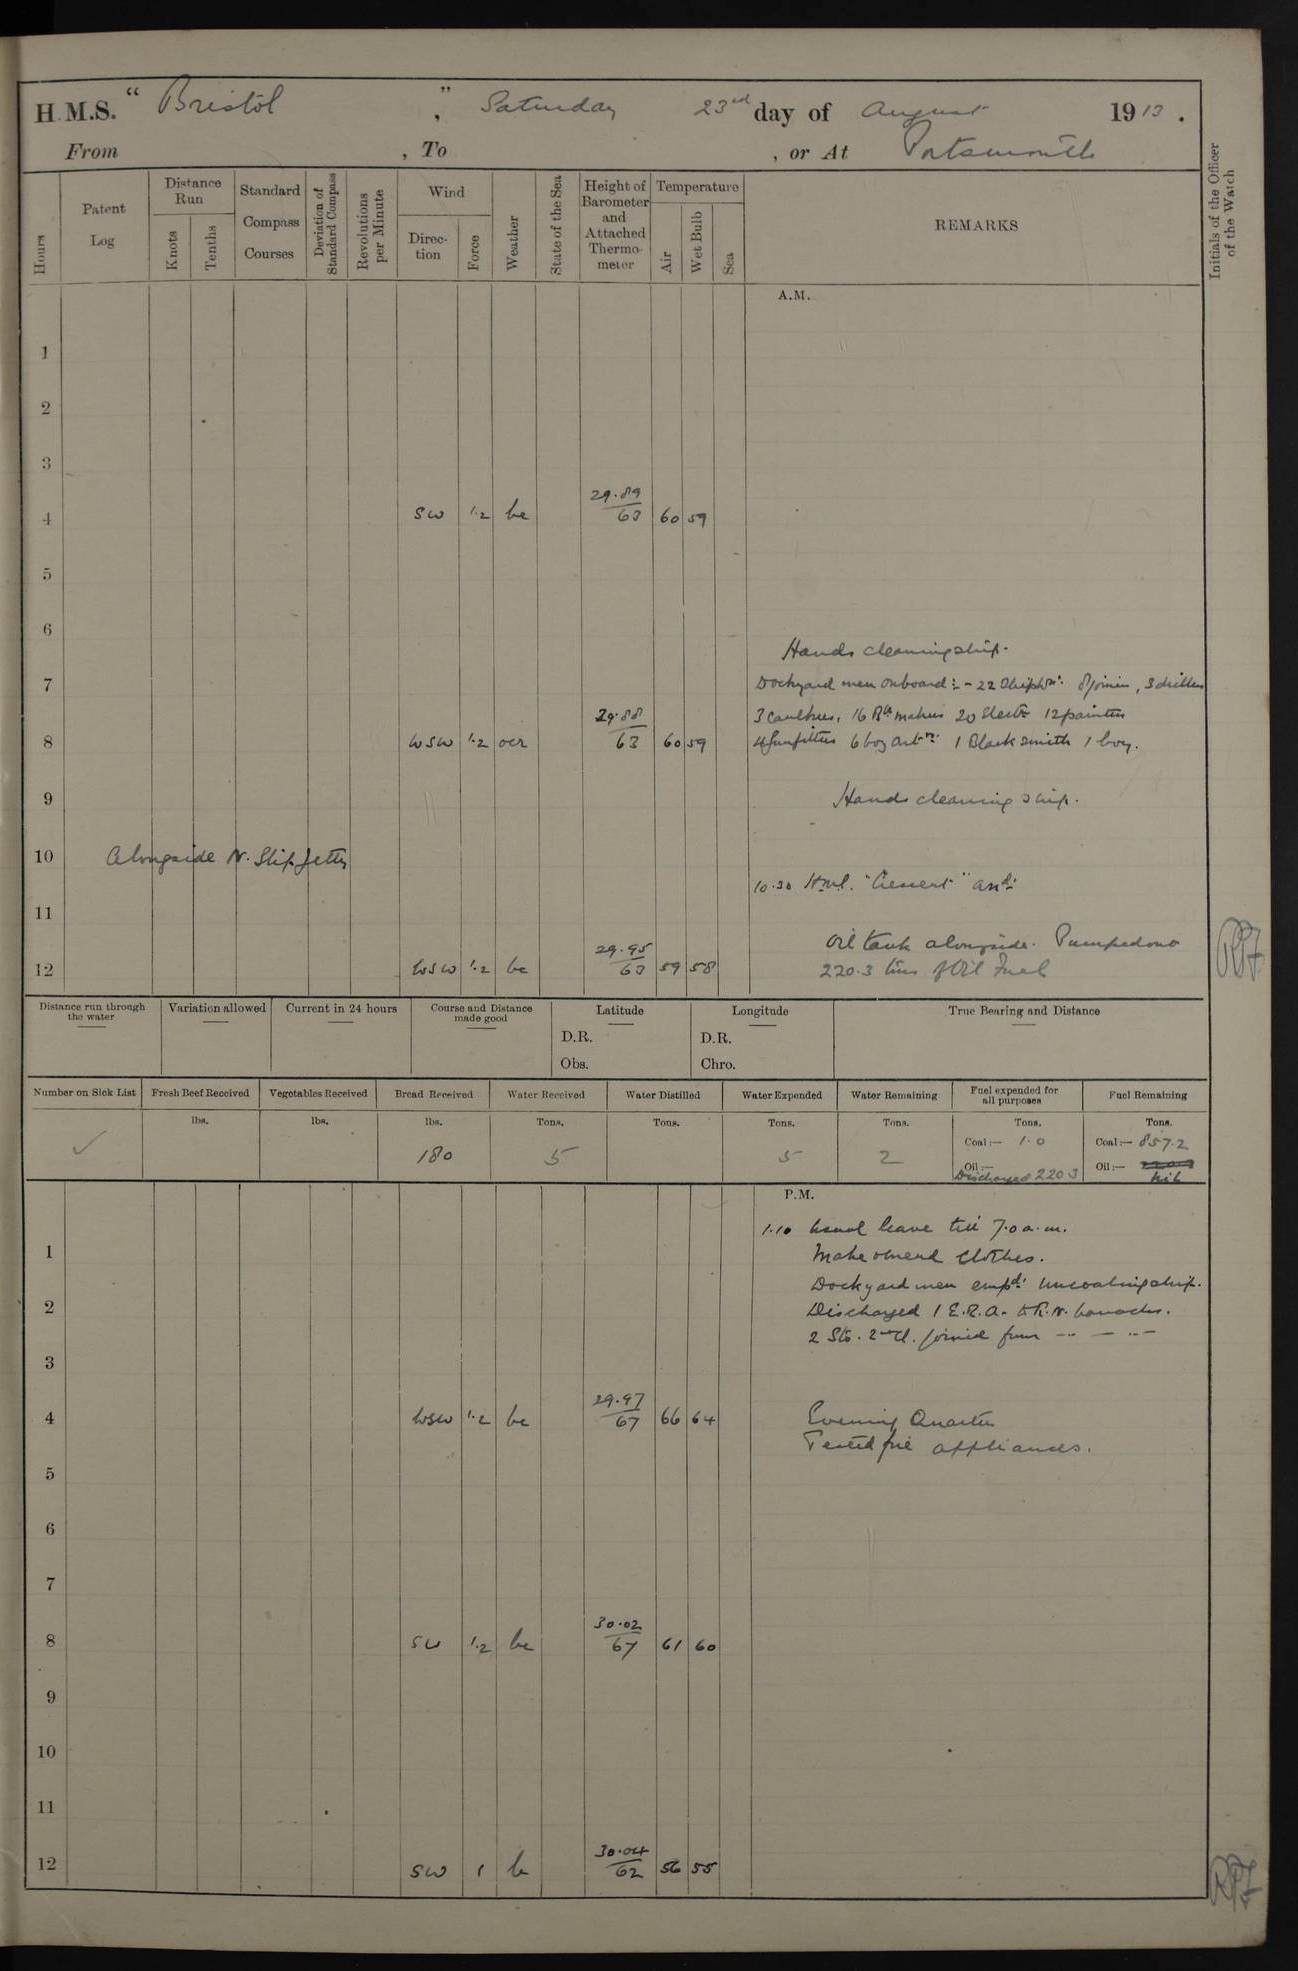 H.M.S. "Bristol", Saturday 23rd day of August 1913.
From , To , or At Portsmouth
Hours
Patent Log
Distance Run
Knots
Tenths
Standard Compass Courses
Deviation of Standard Compass
Revolutions per Minute
Wind
Direction
Force
Weather
State of the Sea
Height of Barometer and Attached Thermometer
Temperature
Air
Wet Bulb
Sea
REMARKS
Initials of the Officer of the Watch
A.M.
1
2
3
4 SW 1.2 bc 29.89 63 60 59
5
6
Hands cleaning ship.
7 Dockyard men onboard:- 22 Shipwts. 8 joiners, 3 drillers
3 caulkers, 16 Br makers 20 Elect. 12 painters
8 WSW 1.2 ocr 29.88 63 60 59 4 Gunfitters 6 boy artrs 1 Blacksmith 1 boy.
9 Hands cleaning ship.
10 Alongside N. Slip Jetty
10.30 "Crescent" and
11
Oil tank alongside. Pumped out
12 WSW 1.2 bc 29.95 63 59 58 220.3 tons of Oil Fuel
RPF
Distance run through the water
Variation allowed
Current in 24 hours
Course and Distance made good
Latitude
D.R.
Obs.
Longitude
D.R.
Chro.
True Bearing and Distance
Number on Sick List
Fresh Beef Received
Vegetables Received
Bread Received
Water Received
Water Distilled
Water Expended
Water Remaining
Fuel expended for all purposes
Fuel Remaining
lbs. lbs. lbs. Tons. Tons. Tons. Tons. Tons. Tons.
✓ 180 5 5 2 Coal:— 1.0 Coal:— 857.2
Oil:— Discharged 220.3 Oil:— Nil
P.M.
1.10 Usual leave till 7.0 a.m.
1 Make & mend clothes.
Dockyard men empd. uncoaling ship.
2 Discharged 1 E.R.A. to R.N. barracks.
2 Sto. 2nd Cl. joined from -- — --
3
4 WSW 1.2 bc 29.97 67 66 64 Evening Quarters
Tested fire appliances.
5
6
7
8 SW 1.2 bc 30.02 67 61 60
9
10
11
12 SW 1 b 30.04 62 56 55
RPF